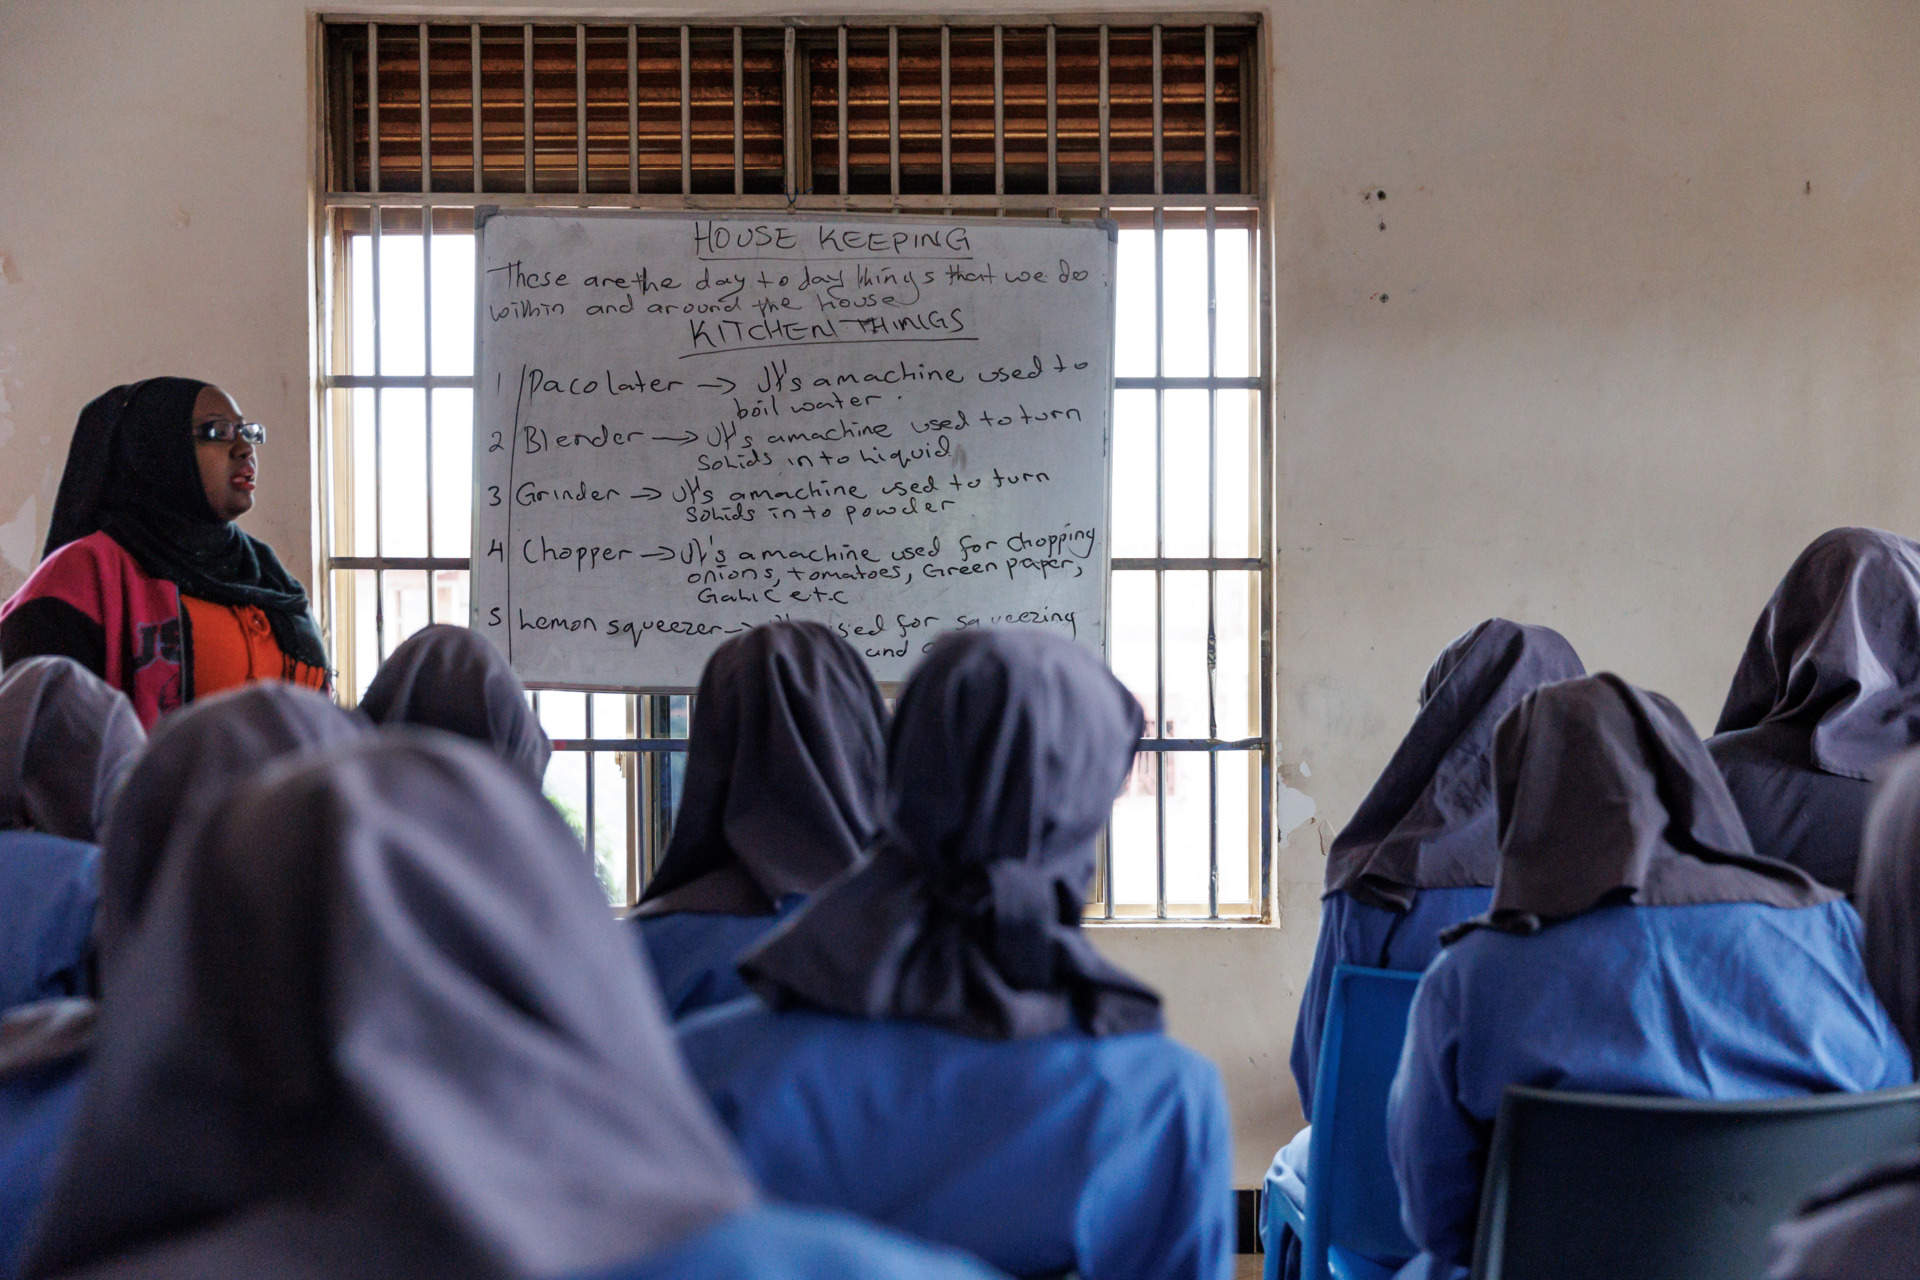 HOUSE KEEPING
These are the day to day things that we do
within and around the house
KITCHEN THINGS
1 Pacolater → It's a machine used to
boil water.
2 Blender → It's a machine used to turn
Solids in to Liquid
3 Grinder → It's a machine used to turn
Solids in to powder
4 Chopper → It's a machine used for chopping
onions, tomatoes, Green paper,
Galic etc
5 Lemon squeezer → used for squeezing
and